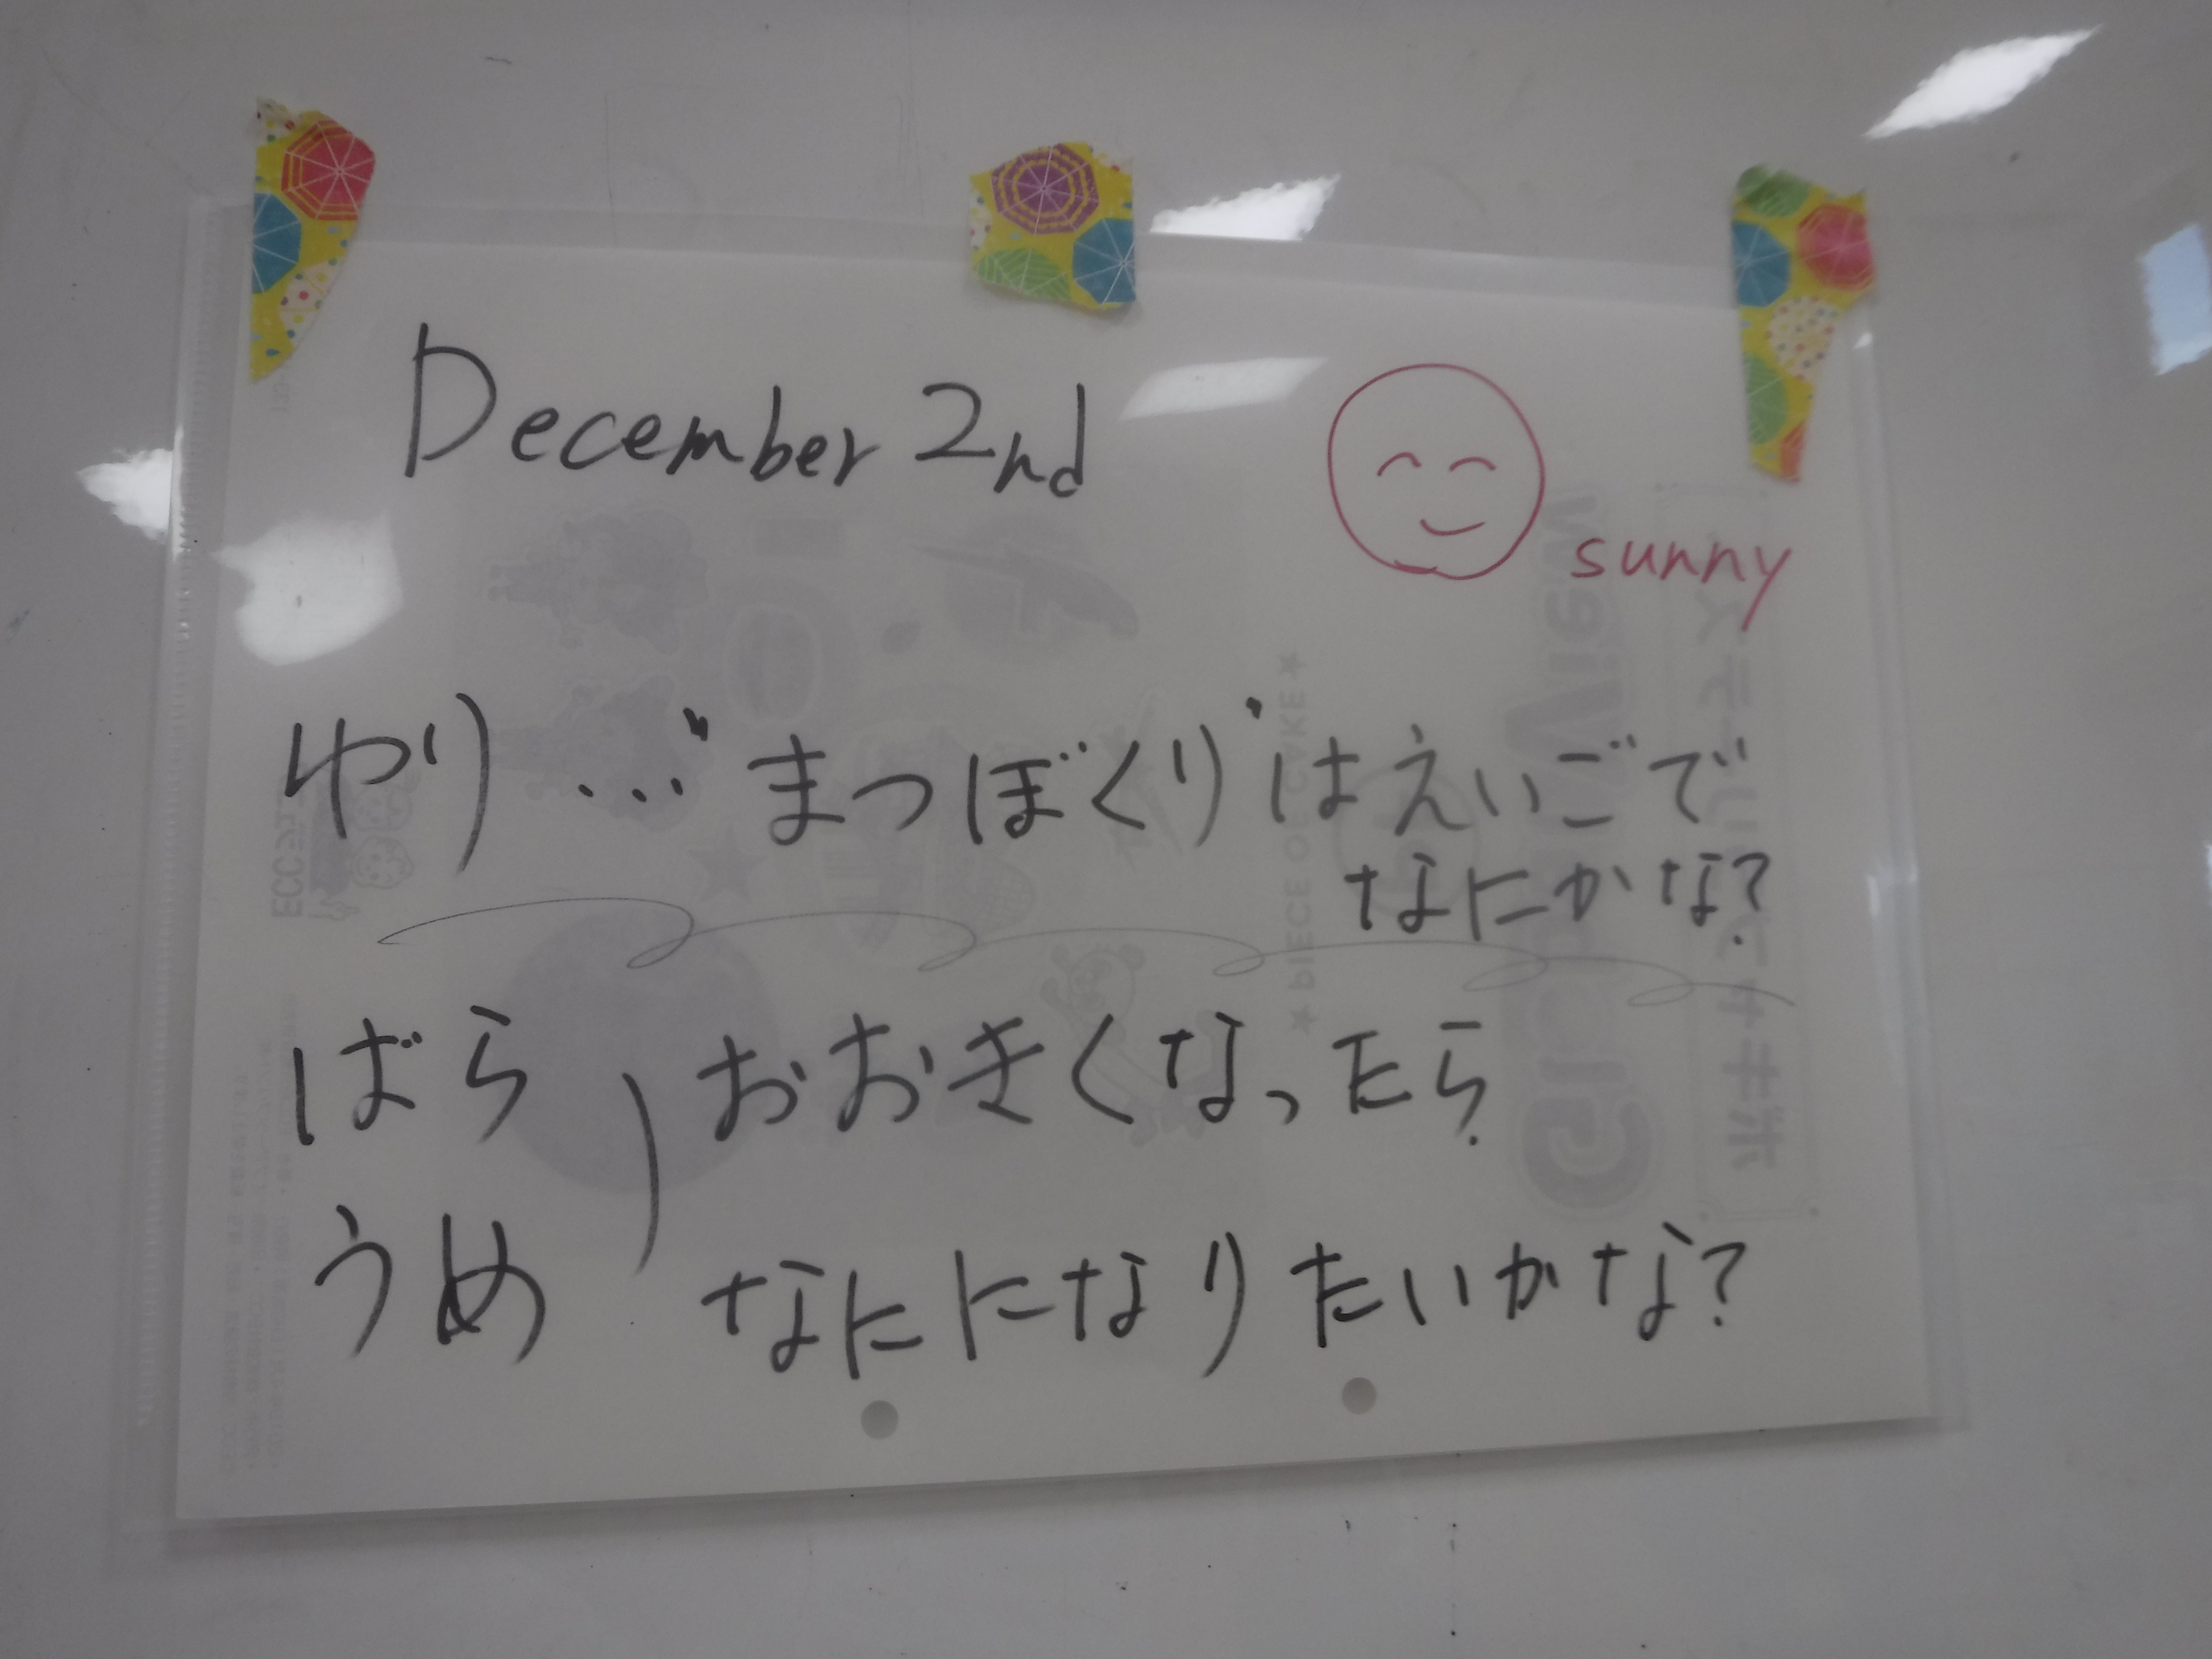 December 2nd
sunny
ゆり…"まつぼくり"はえいごで
なにかな?
ばら
おおきくなったら
うめ
なにになりたいかな?
ECC
★ PIECE OF CAKE ★